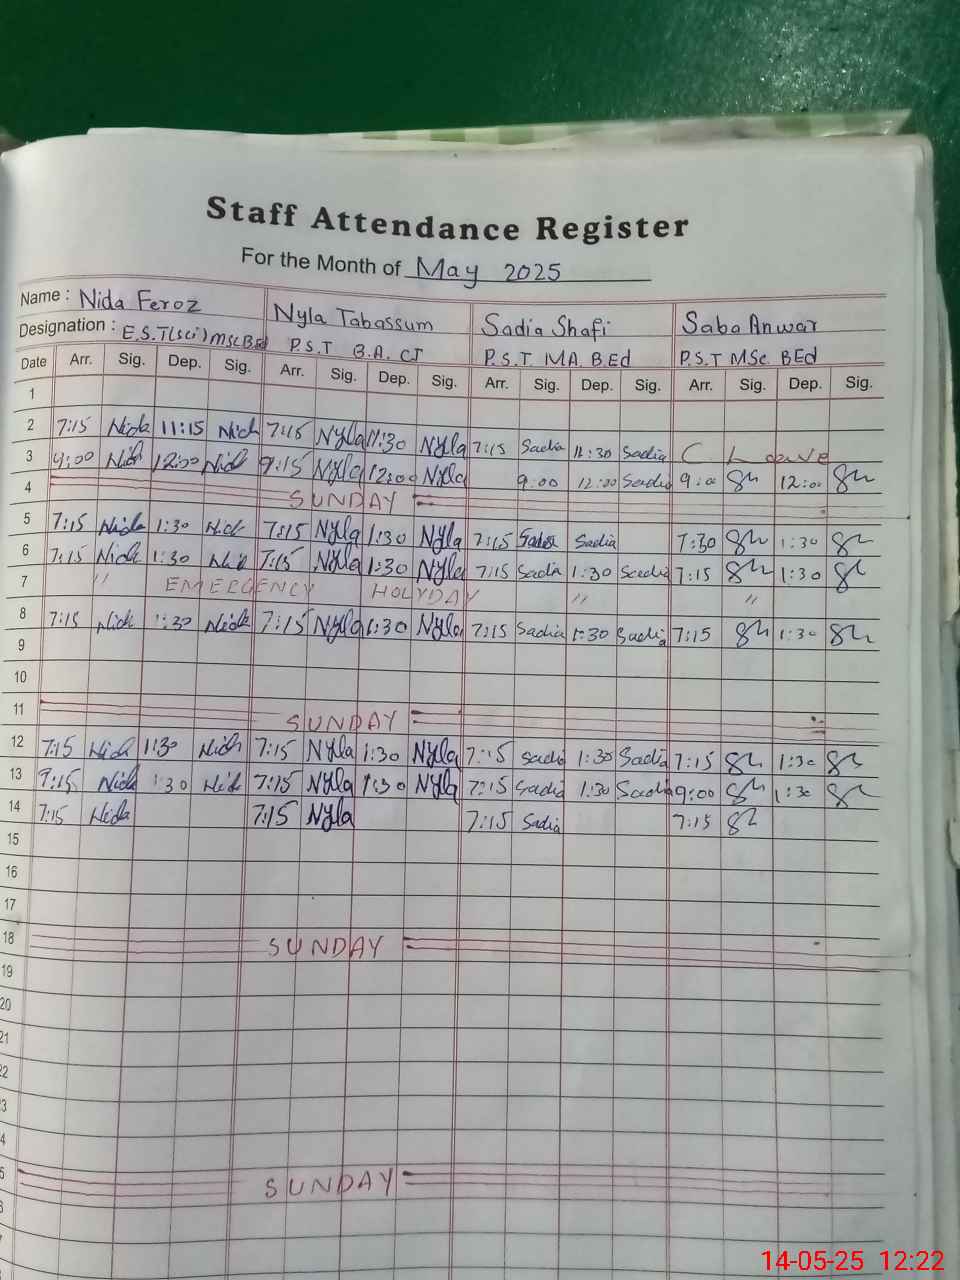 Staff Attendance Register
For the Month of May 2025
Name : Nida Feroz Nyla Tabassum Sadia Shafi Saba Anwar
Designation : E.S.T(Sci) MSc BEd P.S.T B.A. CT P.S.T. MA. B.Ed P.S.T MSc. BEd
Date Arr. Sig. Dep. Sig. Arr. Sig. Dep. Sig. Arr. Sig. Dep. Sig. Arr. Sig. Dep. Sig.
1
2 7:15 Nida 11:15 Nida 7:15 Nyla 11:30 Nyla 7:15 Sadia 11:30 Sadia C Leave
3 9:00 Nida 12:00 Nida 9:15 Nyla 12:00 Nyla 9:00 12:00 Sadia 9:00 12:00
4 SUNDAY
5 7:15 Nida 1:30 Nida 7:15 Nyla 1:30 Nyla 7:15 Sadia Sadia 7:30 1:30
6 7:15 Nida 1:30 Nida 7:15 Nyla 1:30 Nyla 7:15 Sadia 1:30 Sadia 7:15 1:30
7 " EMERGENCY HOLYDAY " "
8 7:15 Nida 1:30 Nida 7:15 Nyla 1:30 Nyla 7:15 Sadia 1:30 Sadia 7:15 1:30
9
10
11 SUNDAY
12 7:15 Nida 1:30 Nida 7:15 Nyla 1:30 Nyla 7:15 Sadia 1:30 Sadia 7:15 1:30
13 7:15 Nida 1:30 Nida 7:15 Nyla 1:30 Nyla 7:15 Sadia 1:30 Sadia 9:00 1:30
14 7:15 Nida 7:15 Nyla 7:15 Sadia 7:15
15
16
17
18 SUNDAY
19
20
21
22
3
4
5 SUNDAY
6
14-05-25 12:22